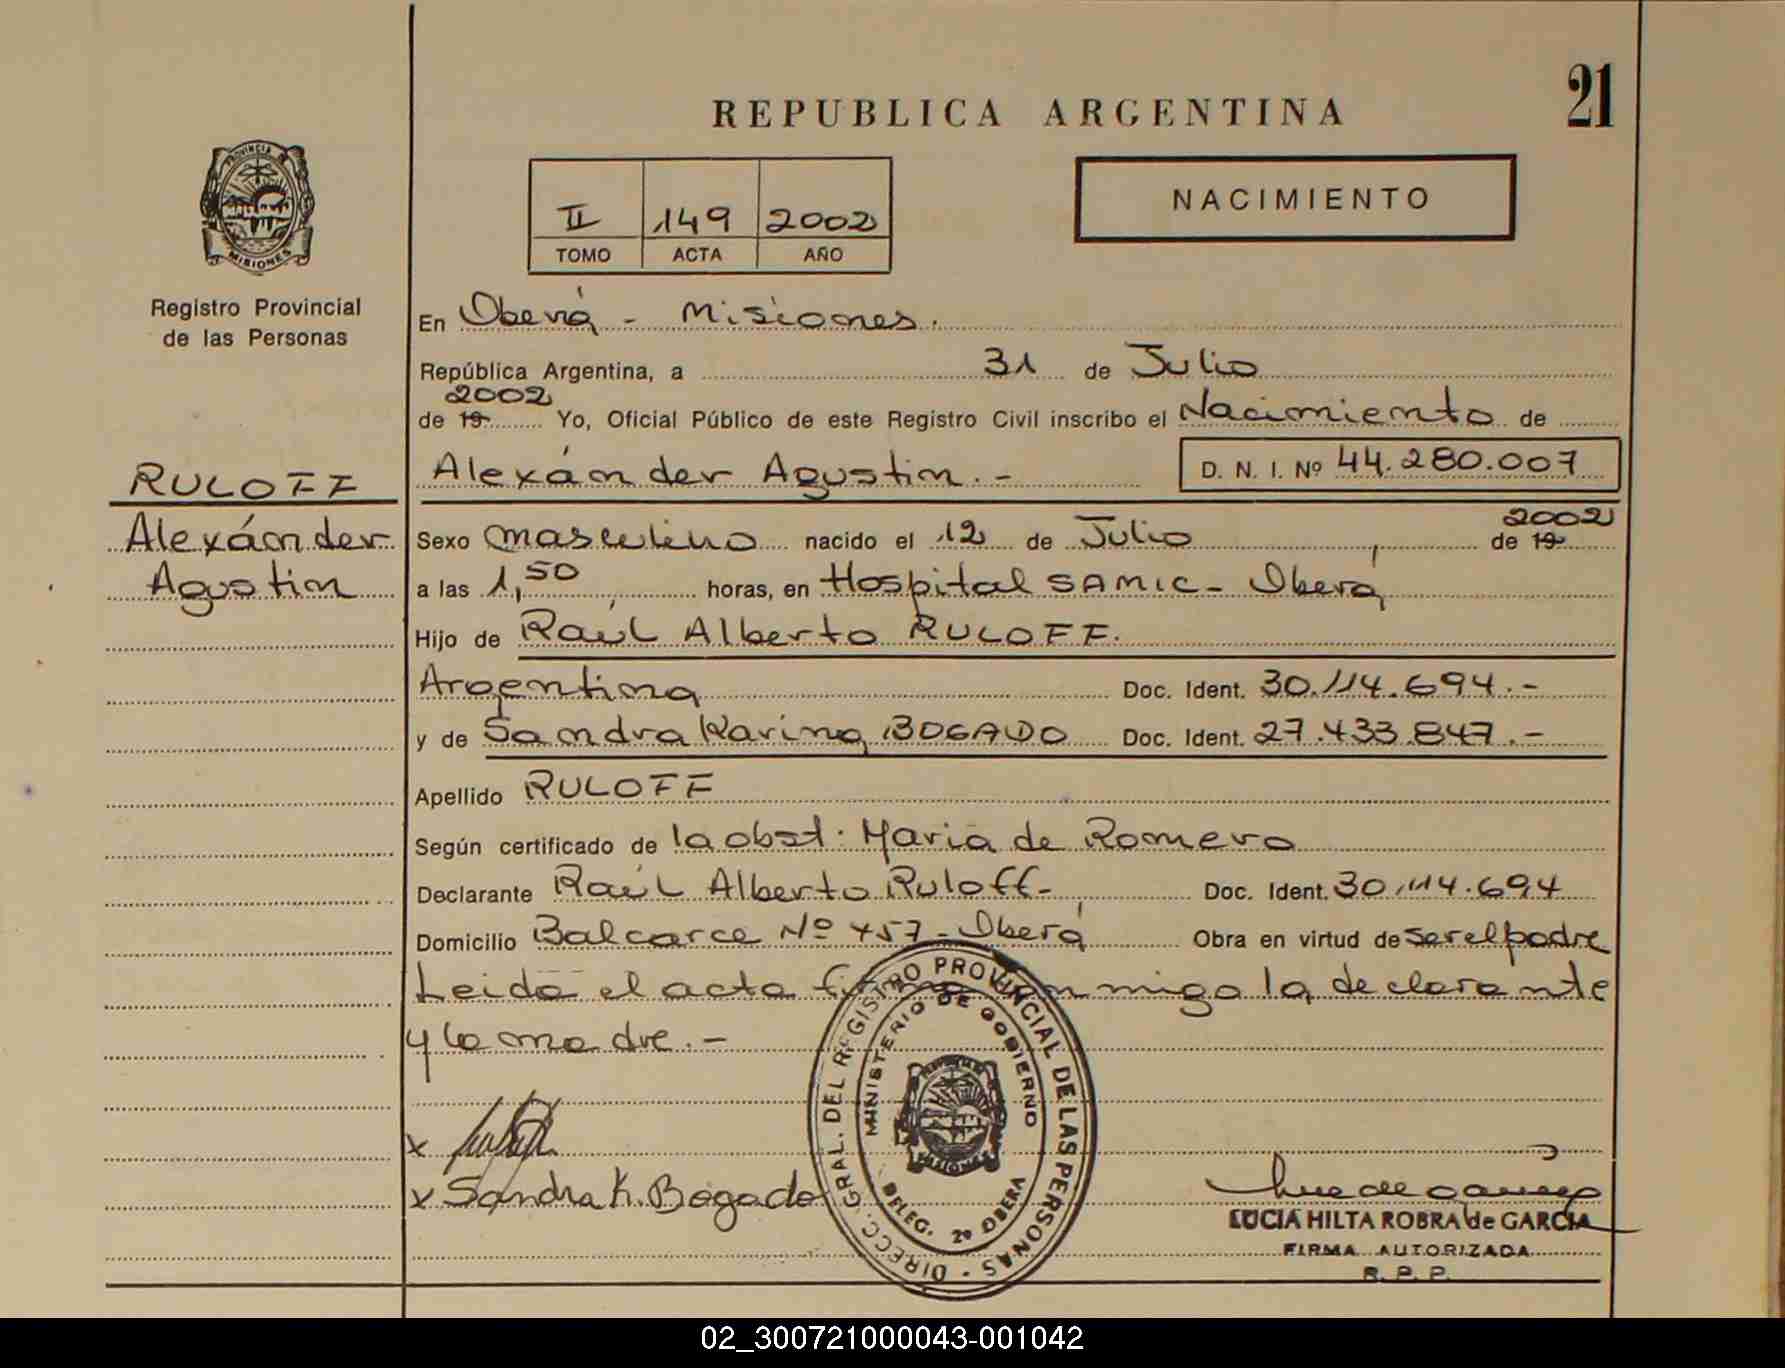 21
REPUBLICA ARGENTINA
PROVINCIA DE
MISIONES
Registro Provincial
de las Personas
II 149 2002
TOMO ACTA AÑO
NACIMIENTO
En Oberá - Misiones.
República Argentina, a 31 de Julio
2002
de 19 Yo, Oficial Público de este Registro Civil inscribo el Nacimiento de
Alexánder Agustin.- D. N. I. Nº 44.280.007
RULOFF
Alexánder
Agustin
2002
Sexo masculino nacido el 12 de Julio, de 19
a las 1,50 horas, en Hospital SAMIC - Oberá
Hijo de Raúl Alberto RULOFF.
Argentina Doc. Ident. 30.114.694.-
y de Sandra Karina BOGADO Doc. Ident. 27.433.847.-
Apellido RULOFF
Según certificado de la obst: Maria de Romero
Declarante Raúl Alberto Ruloff- Doc. Ident. 30.114.694
Domicilio Balcarce Nº 457 - Oberá Obra en virtud de ser el padre
Leida el acta firma conmigo la declarante
y la madre.-
x
x Sandra K. Bogado
DIRECC. GRAL. DEL REGISTRO PROVINCIAL DE LAS PERSONAS
MINISTERIO DE GOBIERNO
MISIONES
DELEG. 2º OBERA
LUCIA HILTA ROBRA de GARCIA
FIRMA AUTORIZADA
R. P. P.
02_300721000043-001042